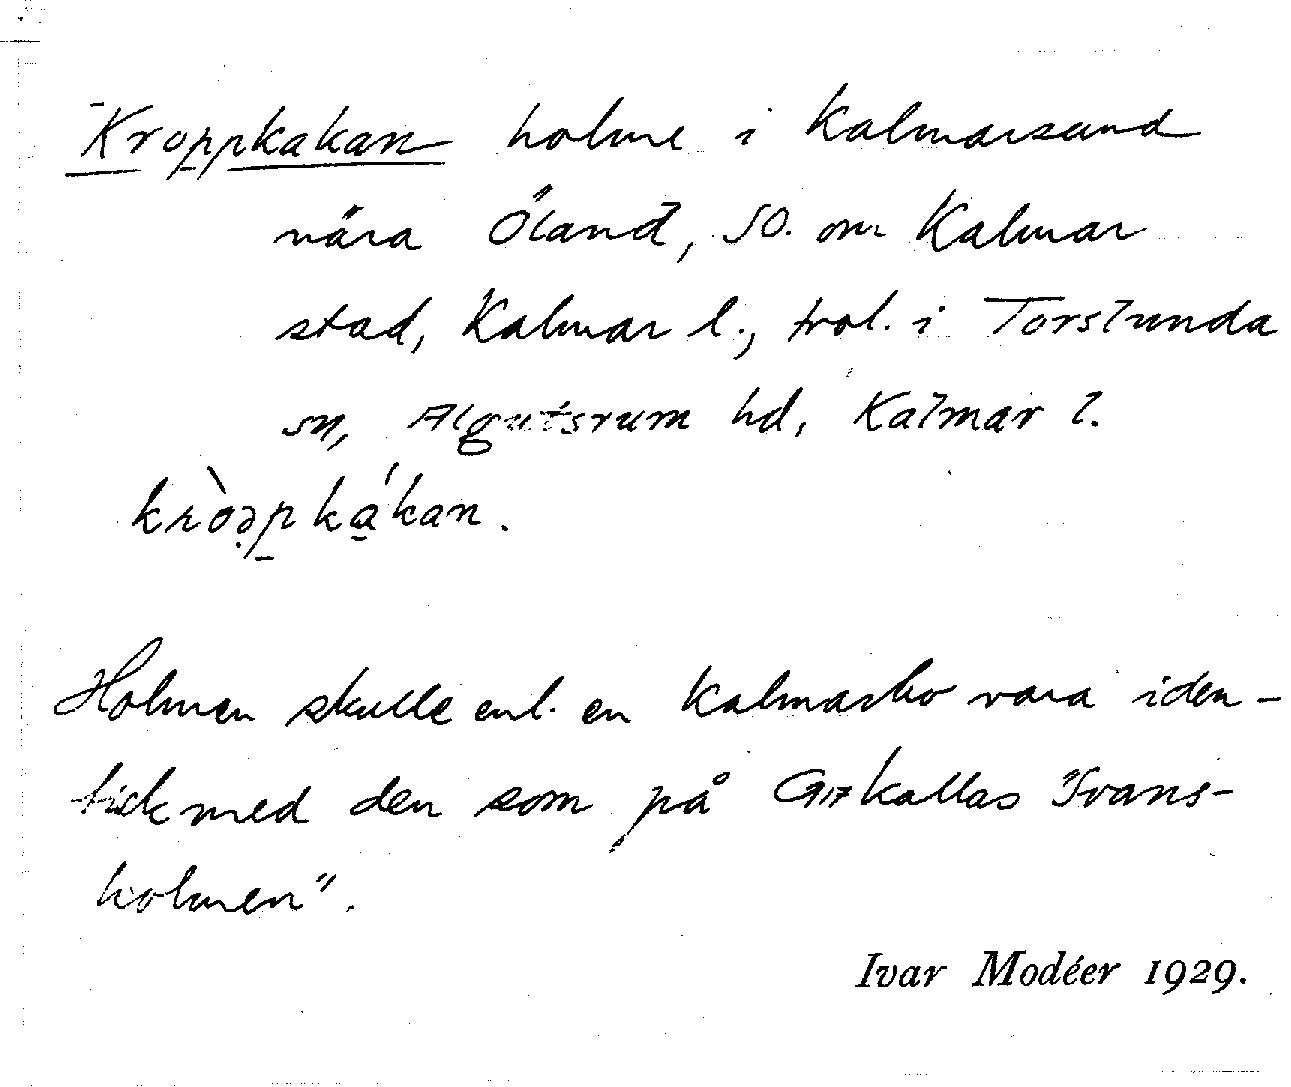 Kroppkakan holme i Kalmarsund
nära Öland, SO. om Kalmar
stad, Kalmar l., trol. i Torslunda
sn, Algutsrum hd, Kalmar l.
kròəpkákan.
Holmen skulle enl. en Kalmarbo vara iden-
tisk med den som på G17 kallas "Svans-
holmen".
Ivar Modéer 1929.